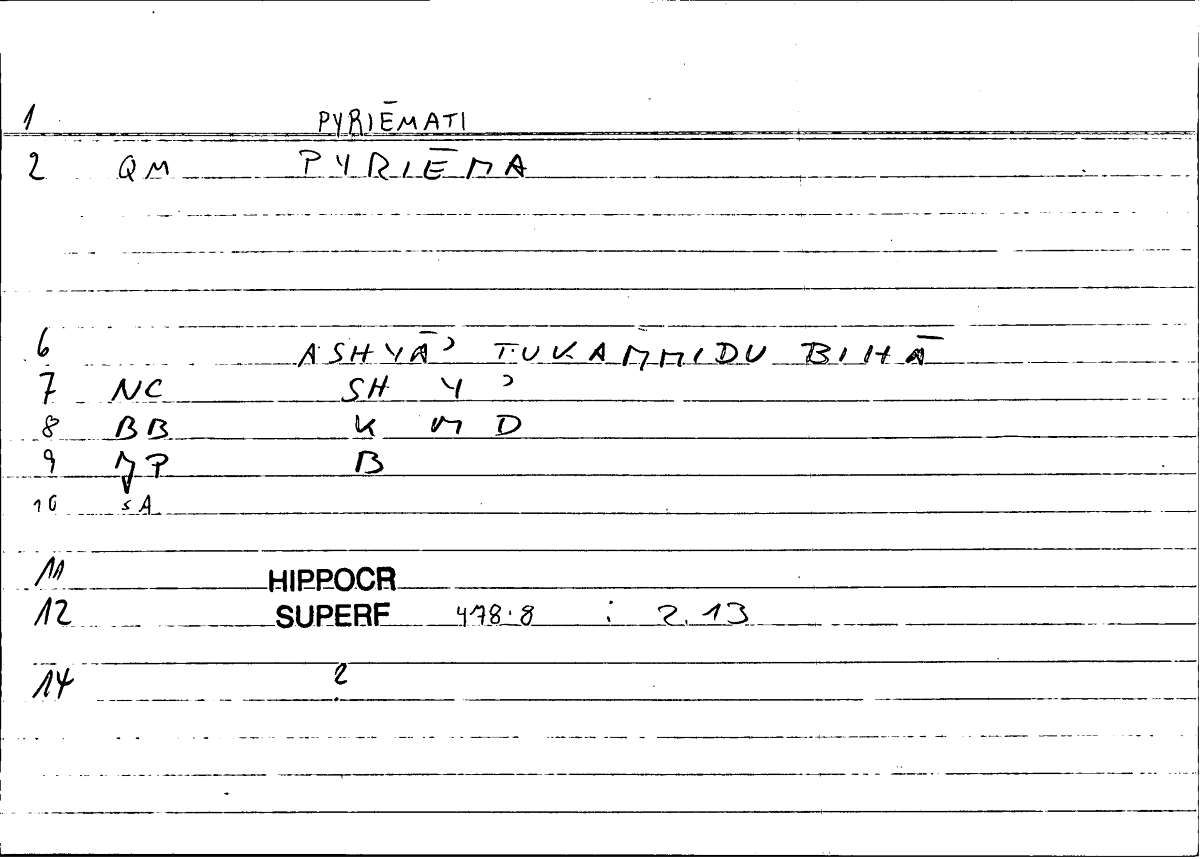 1 PYRIĒMATI
2 QM PYRIĒMA
6 ASHYĀʾ TUKAMMIDU BIHĀ
7 NC SH Y ʾ
8 BB K M D
9 MP B
10 SA
11 HIPPOCR
12 SUPERF 478.8 : 2.13
14 2